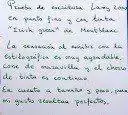 Prueba de escritura Lamy 2000
en punto fino y con tinta
"Irish green" de Montblanc
La sensación al escribir con la
estilográfica es muy agradable,
corre de maravilla y el chorro
de tinta es continuo
En cuanto a tamaño y peso, para
mi gusto resultan perfectos,